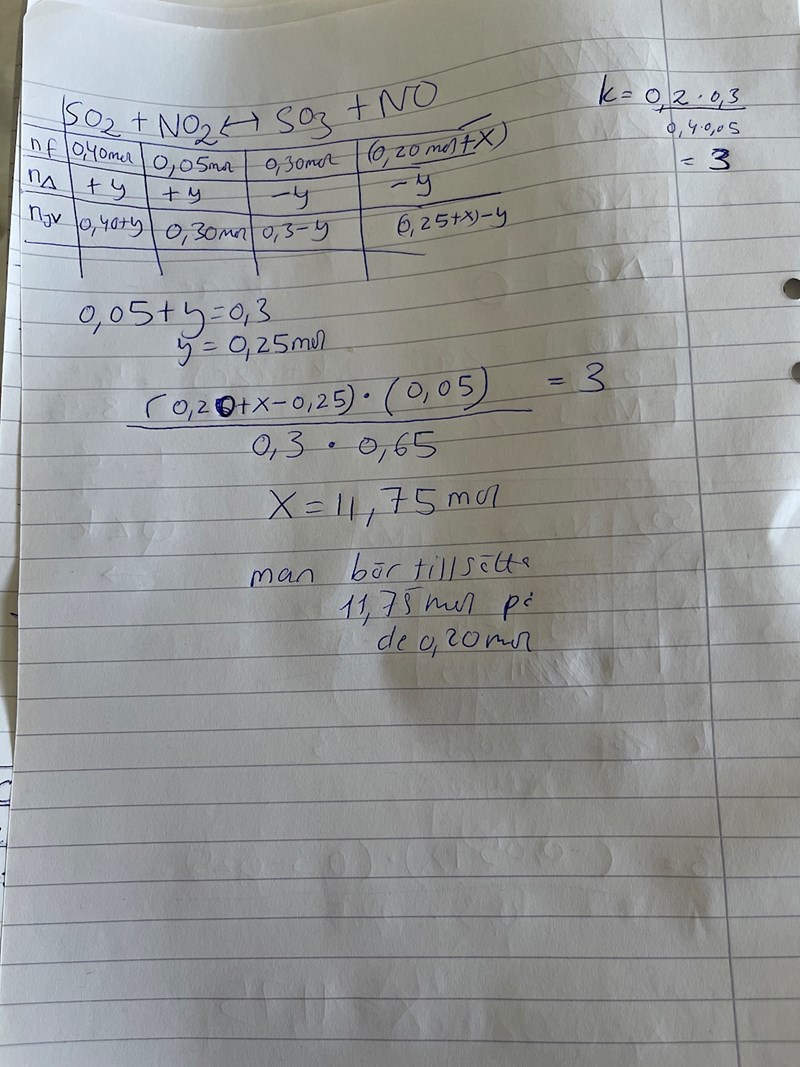 SO2 + NO2 ↔ SO3 + NO
k = 0,2 · 0,3
0,4·0,05
= 3
nf 0,40mol 0,05mol 0,30mol (0,20mol+X)
n∆ +y +y -y -y
njv 0,40+y 0,30mol 0,3-y (0,25+x)-y
0,05+y=0,3
y = 0,25mol
(0,20+x-0,25) · (0,05) = 3
0,3 · 0,65
X = 11,75 mol
man bör tillsätta
11,75 mol på
de 0,20 mol